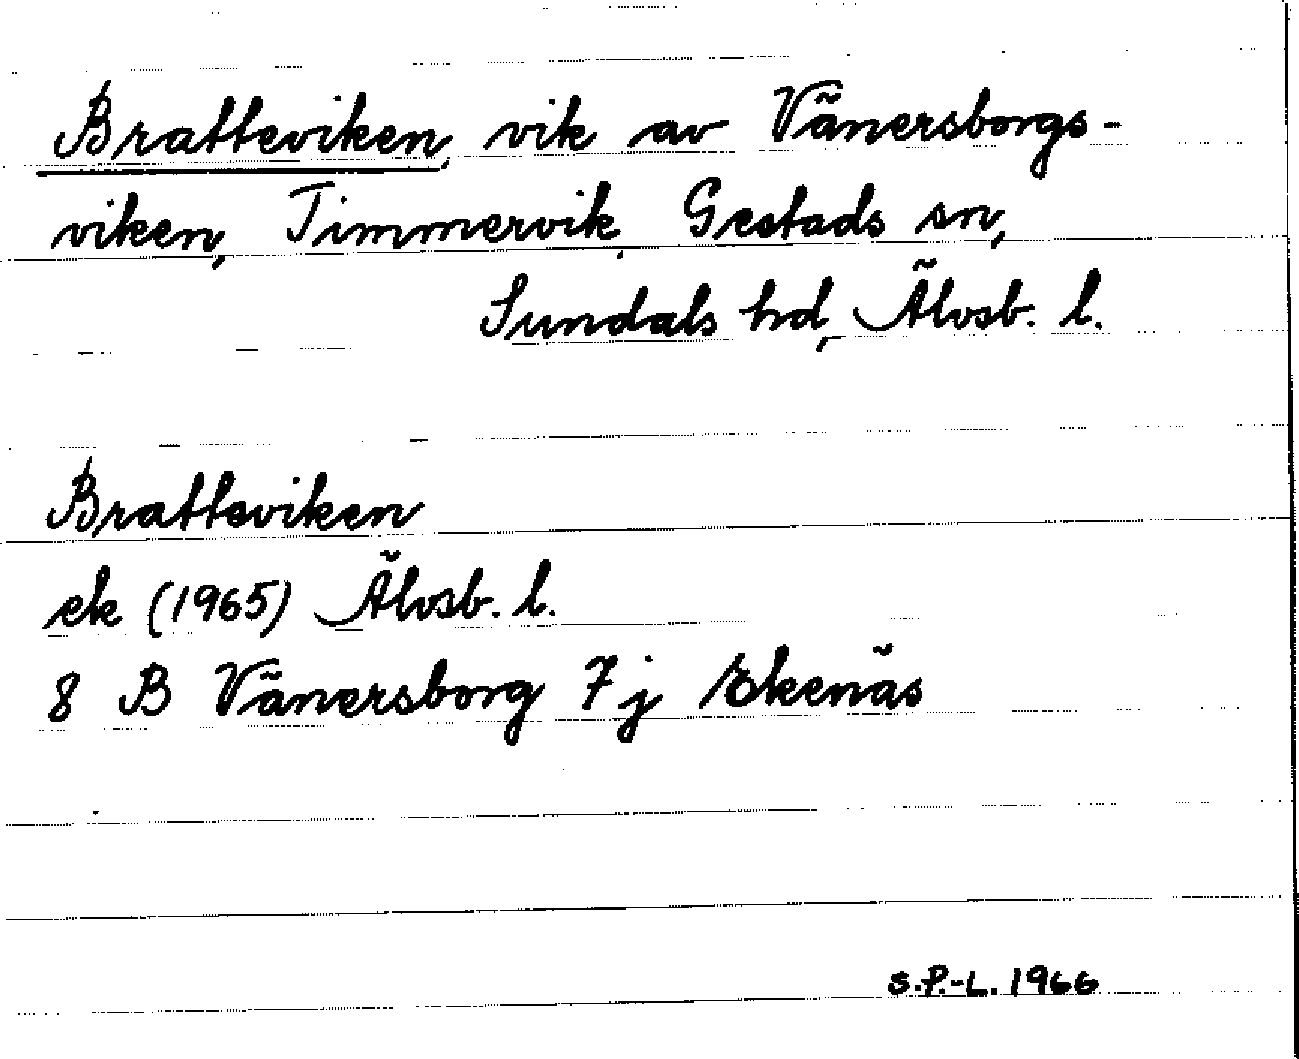 Bratteviken, vik av Vänersborgs-
viken, Timmervik, Gestads sn,
Sundals hd, Älvsb. l.
Bratteviken
ek (1965) Älvsb. l.
8 B Vänersborg 7 j Ekenäs
S.P.-L. 1966